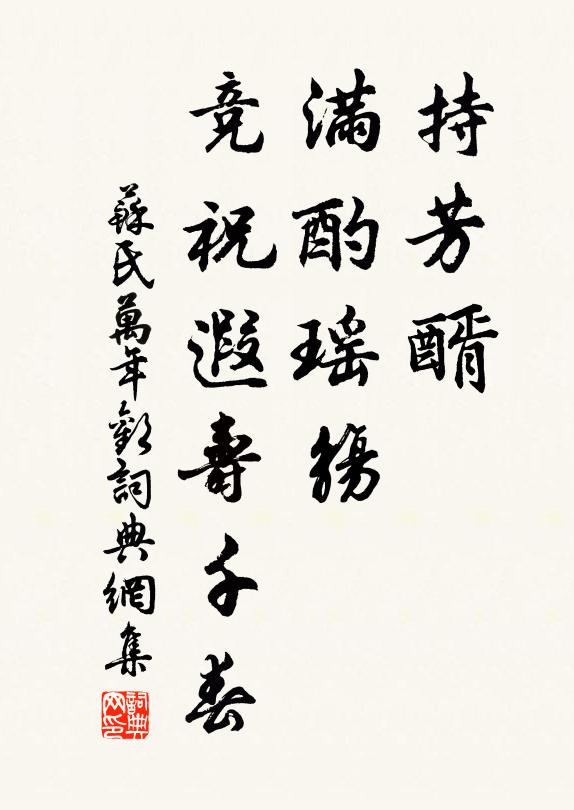 持芳醑
滿酌瑤觴
竞祝遐壽千春
蘇氏萬年歡詞典網集
詞典網印